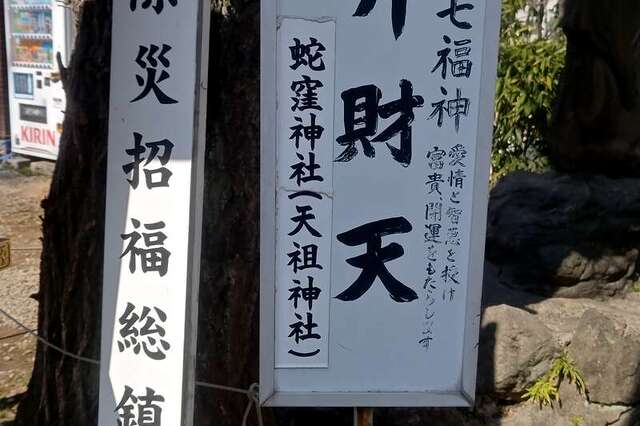 七福神
愛情と智慧を授け
富貴、開運をもたらします
弁財天
蛇窪神社(天祖神社)
除災招福総鎮
KIRIN